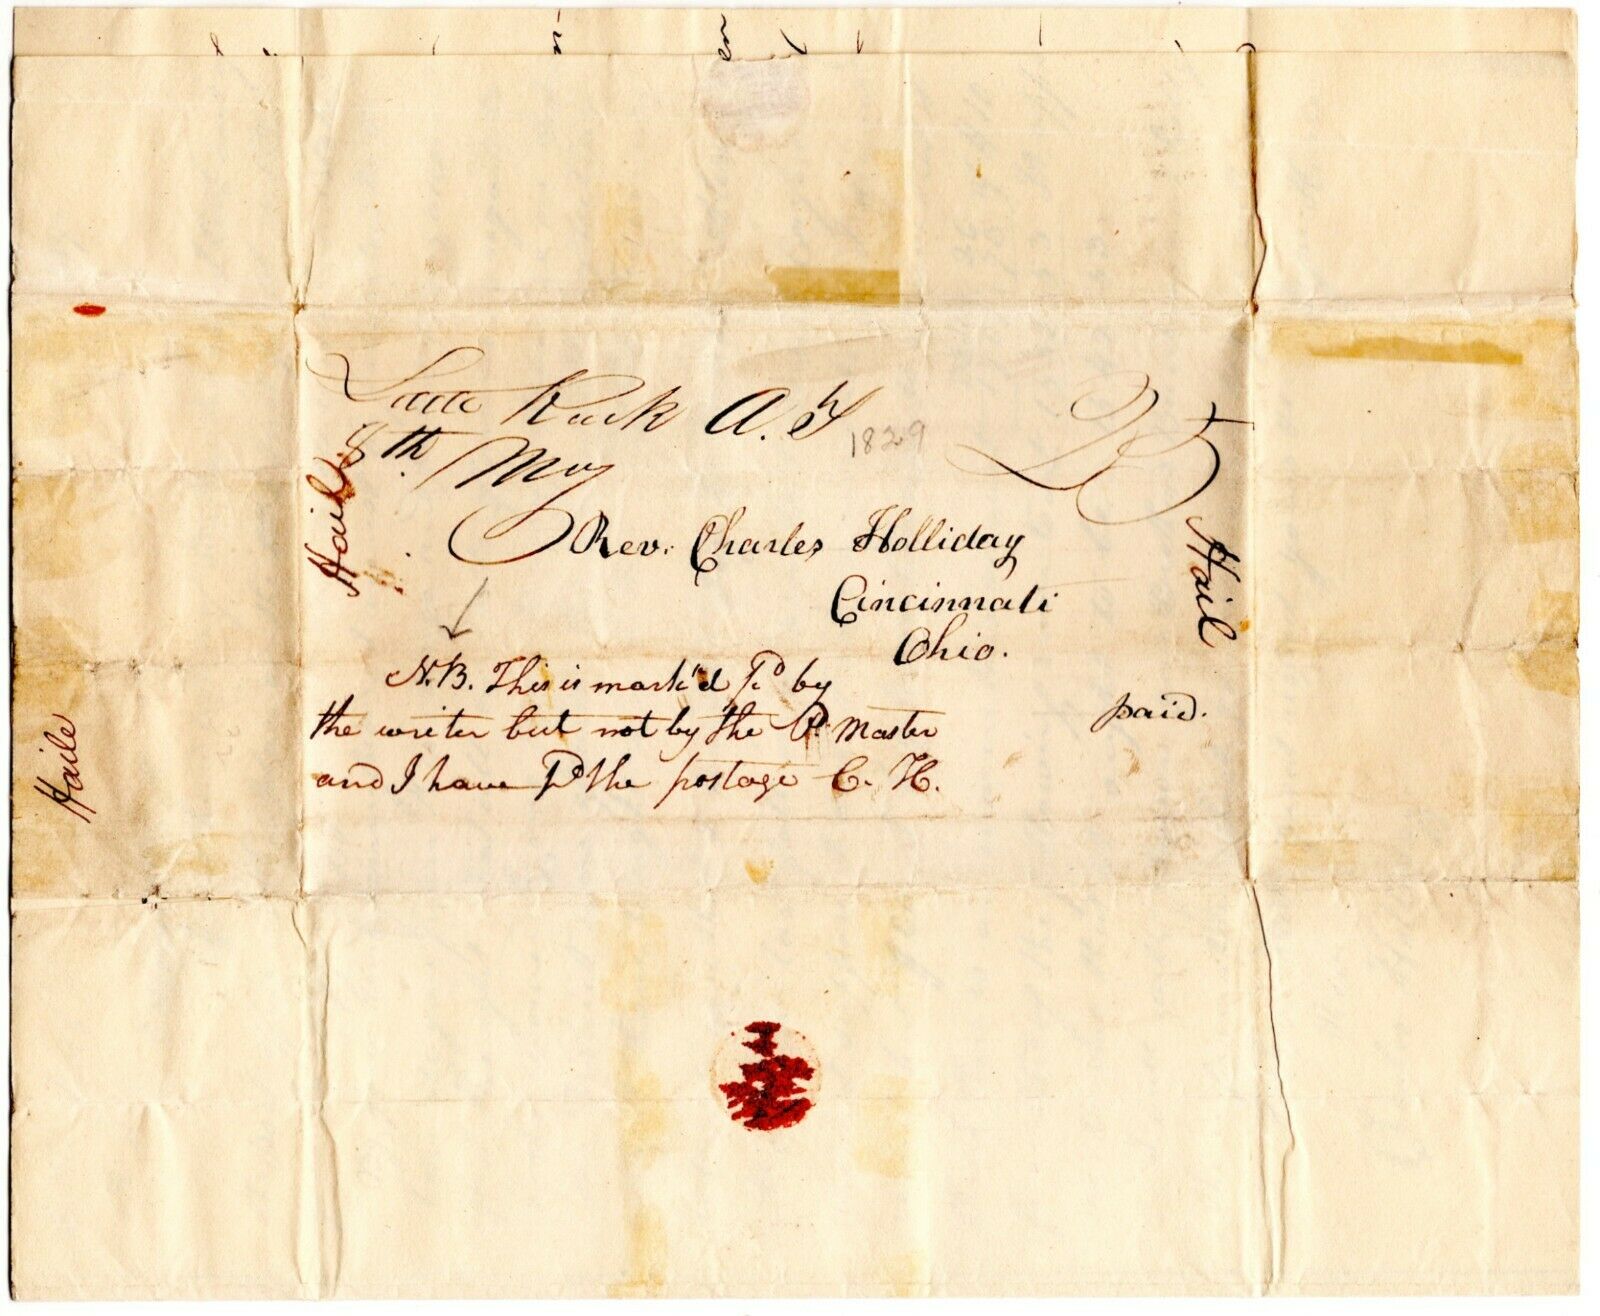 Little Rock A.T
8th May
1829
25
Rev. Charles Holliday
Cincinnati
Ohio.
paid.
N.B. This is mark'd Pd by
the writer but not by the P. Master
and I have Pd the postage C. H.
Hail
Hail
Haile
en